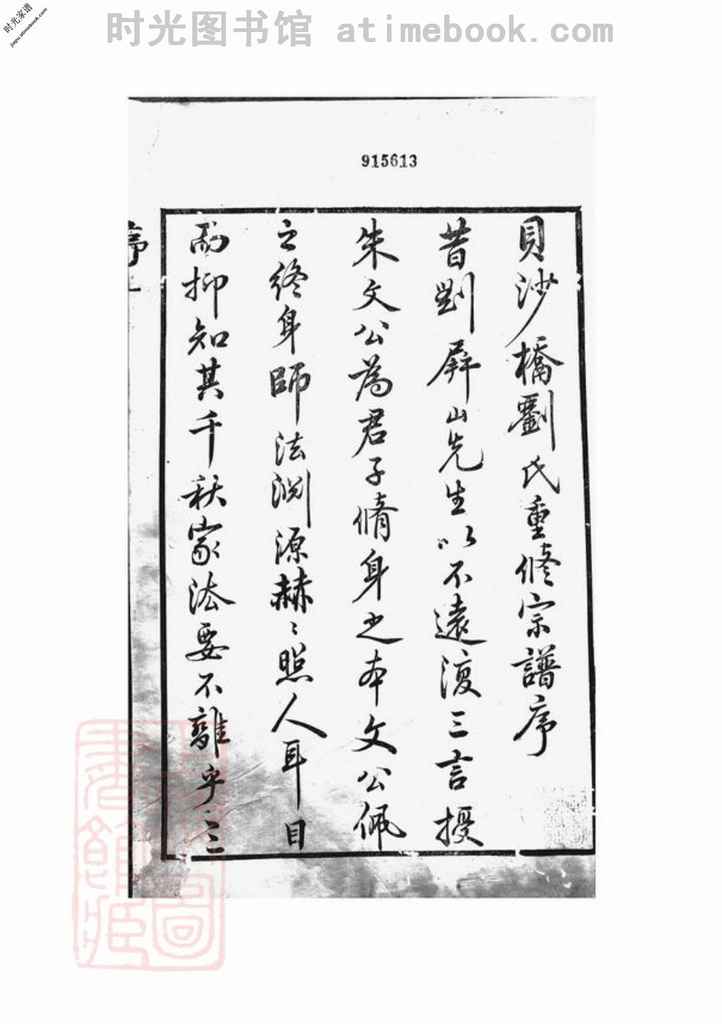 时光家谱
jiapu.atimebook.com
时光图书馆 atimebook.com
915613
貝沙橋劉氏重修宗譜序
昔劉屏山先生以不遠復三言授
朱文公為君子脩身之本文公佩
之終身師法淵源赫〻照人耳目
而抑知其千秋家法要不離乎三
序
一